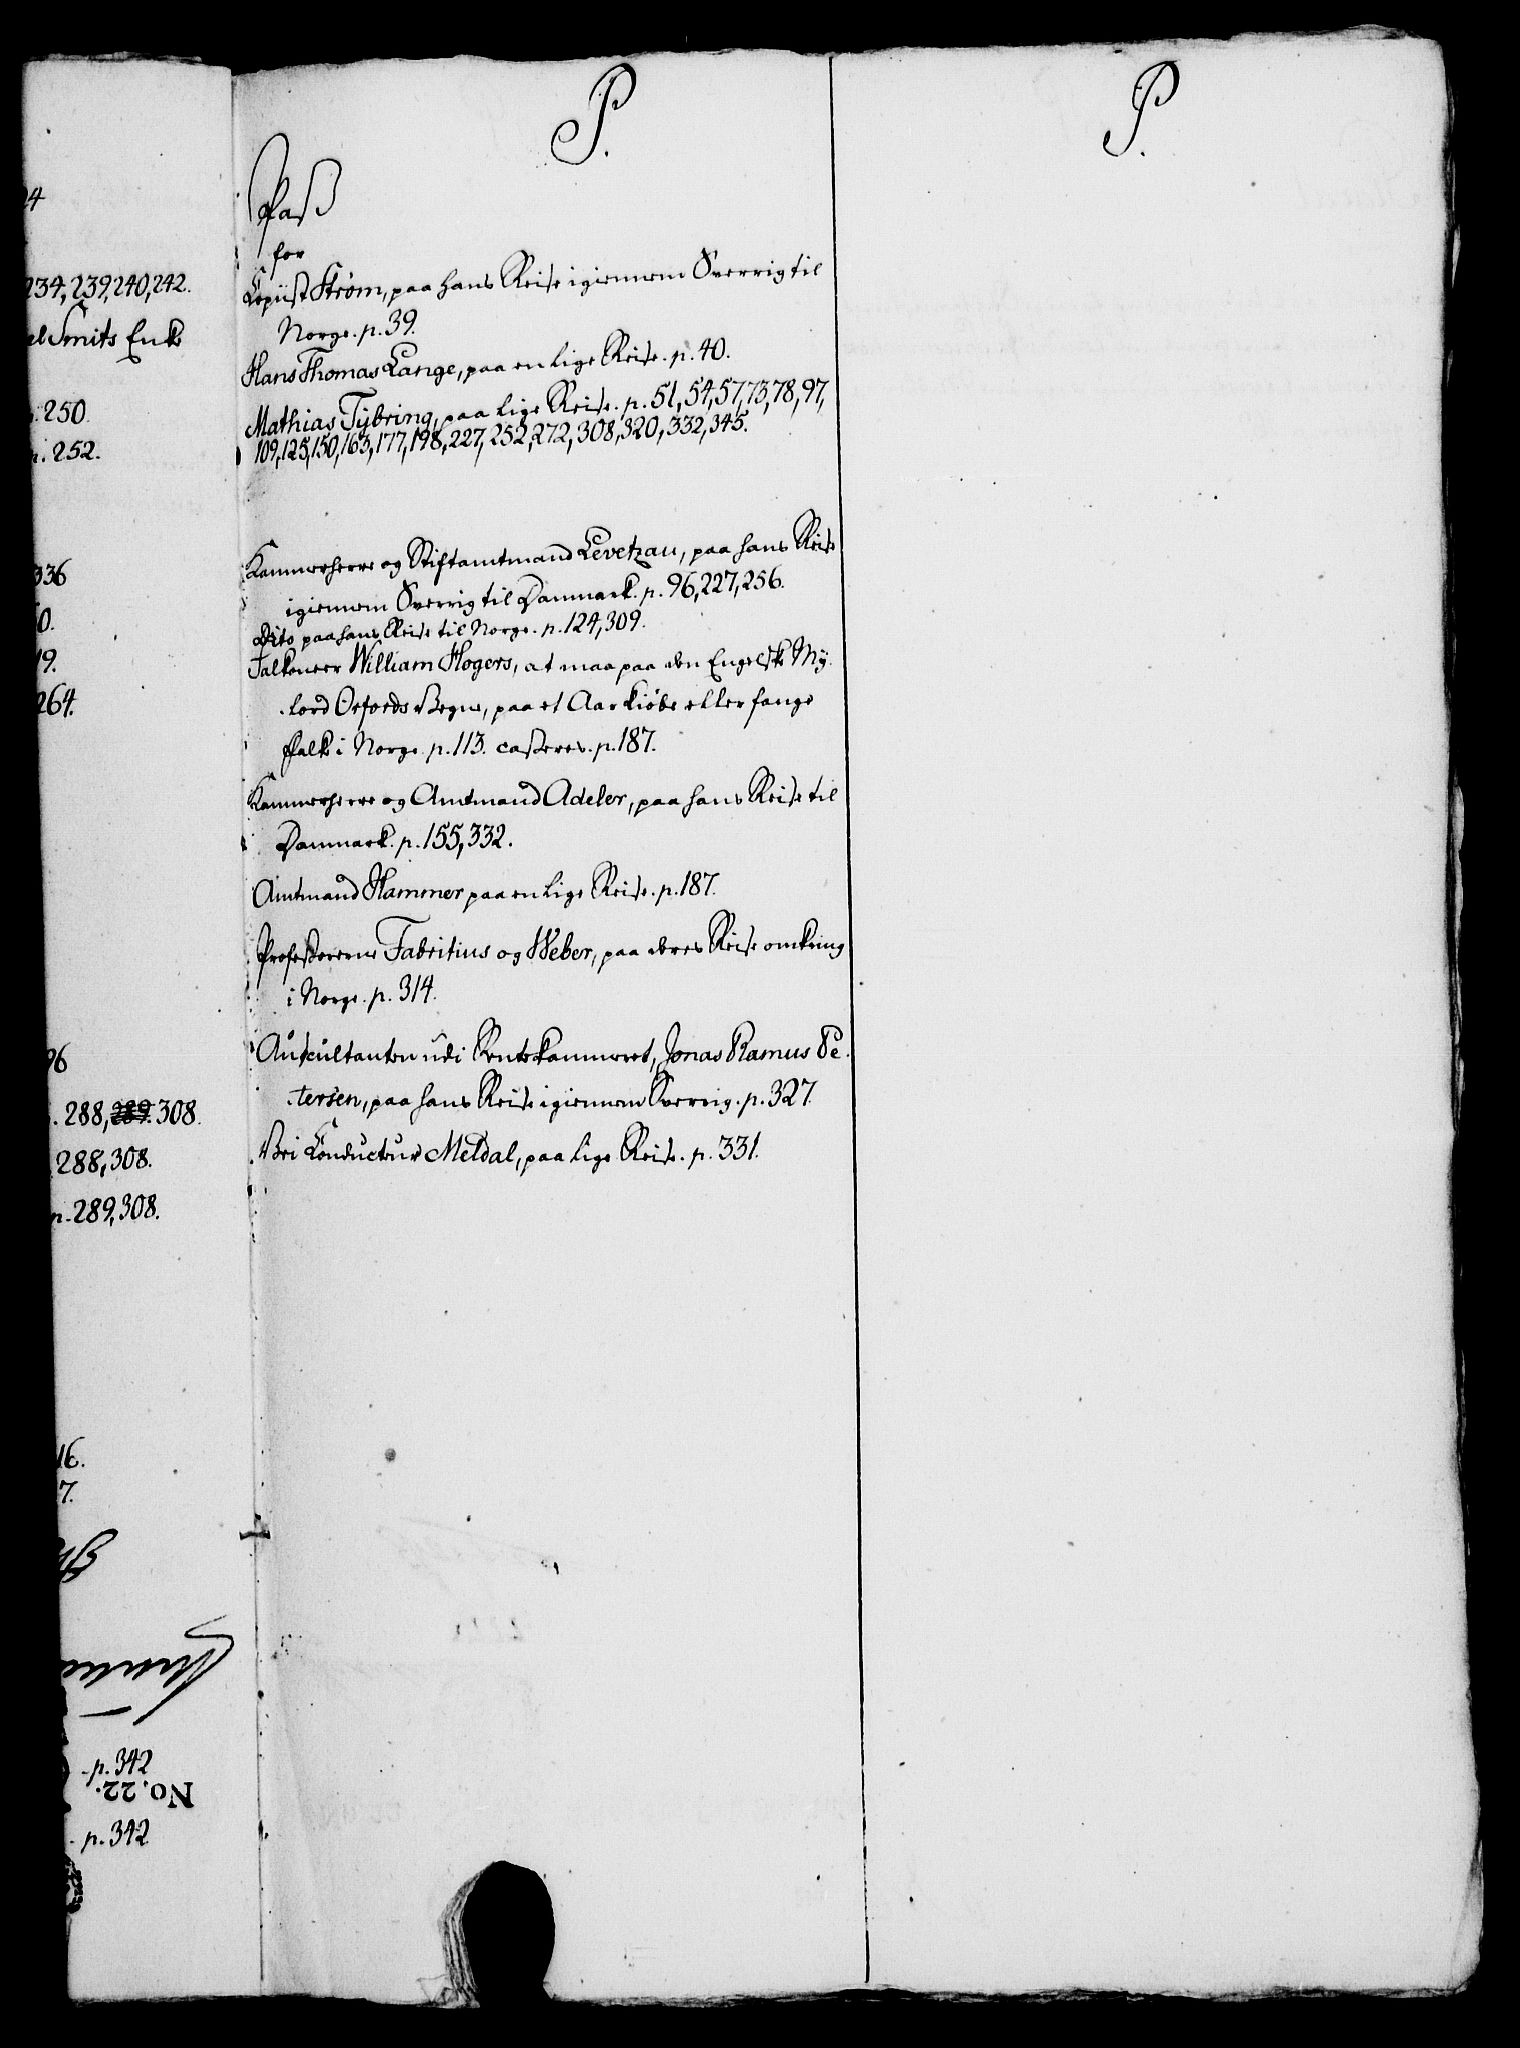 P.
P.
Paß
for
Copiist Strøm, paa hans Reise igiennem Sverrig til
Norge. p. 39.
Hans Thomas Lange, paa en lige Reise. p. 40.
Mathias Tÿbring, paa lige Reise. p. 51, 54, 57, 73, 78, 97,
109, 125, 150, 163, 177, 198, 227, 252, 272, 308, 320, 332, 345.
Kammerherre og Stiftamtmand Levetzau, paa hans Reise
igiennem Sverrig til Danmark. p. 96, 227, 256.
Dito paa hans Reise til Norge. p. 124, 309.
Falkeneer William Hogers, at maa paa den Engelske My-
lord Orfords Vegne, paa et Aar kiøbe eller fange
Falke i Norge p. 113. casseres. p. 187.
Kammerherre og Amtmand Adeler, paa hans Reise til
Danmark. p. 155, 332.
Amtmand Hammer paa en lige Reise. p. 187.
Professorerne Fabritius og Weber, paa deres Reise omkring
i Norge. p. 314.
Auscultanten udi Rentekammeret, Jonas Ramus Pe-
tersen, paa hans Reise igiennem Sverrig. p. 327.
Vei Conducteur Meldal, paa lige Reise. p. 331.
4
234, 239, 240, 242.
el Smits Enke
p. 250.
p. 252.
336
0.
19.
264.
96
. 288, 289. 308.
288, 308.
p. 289, 308.
16.
7.
p. 342
No. 22.
p. 342